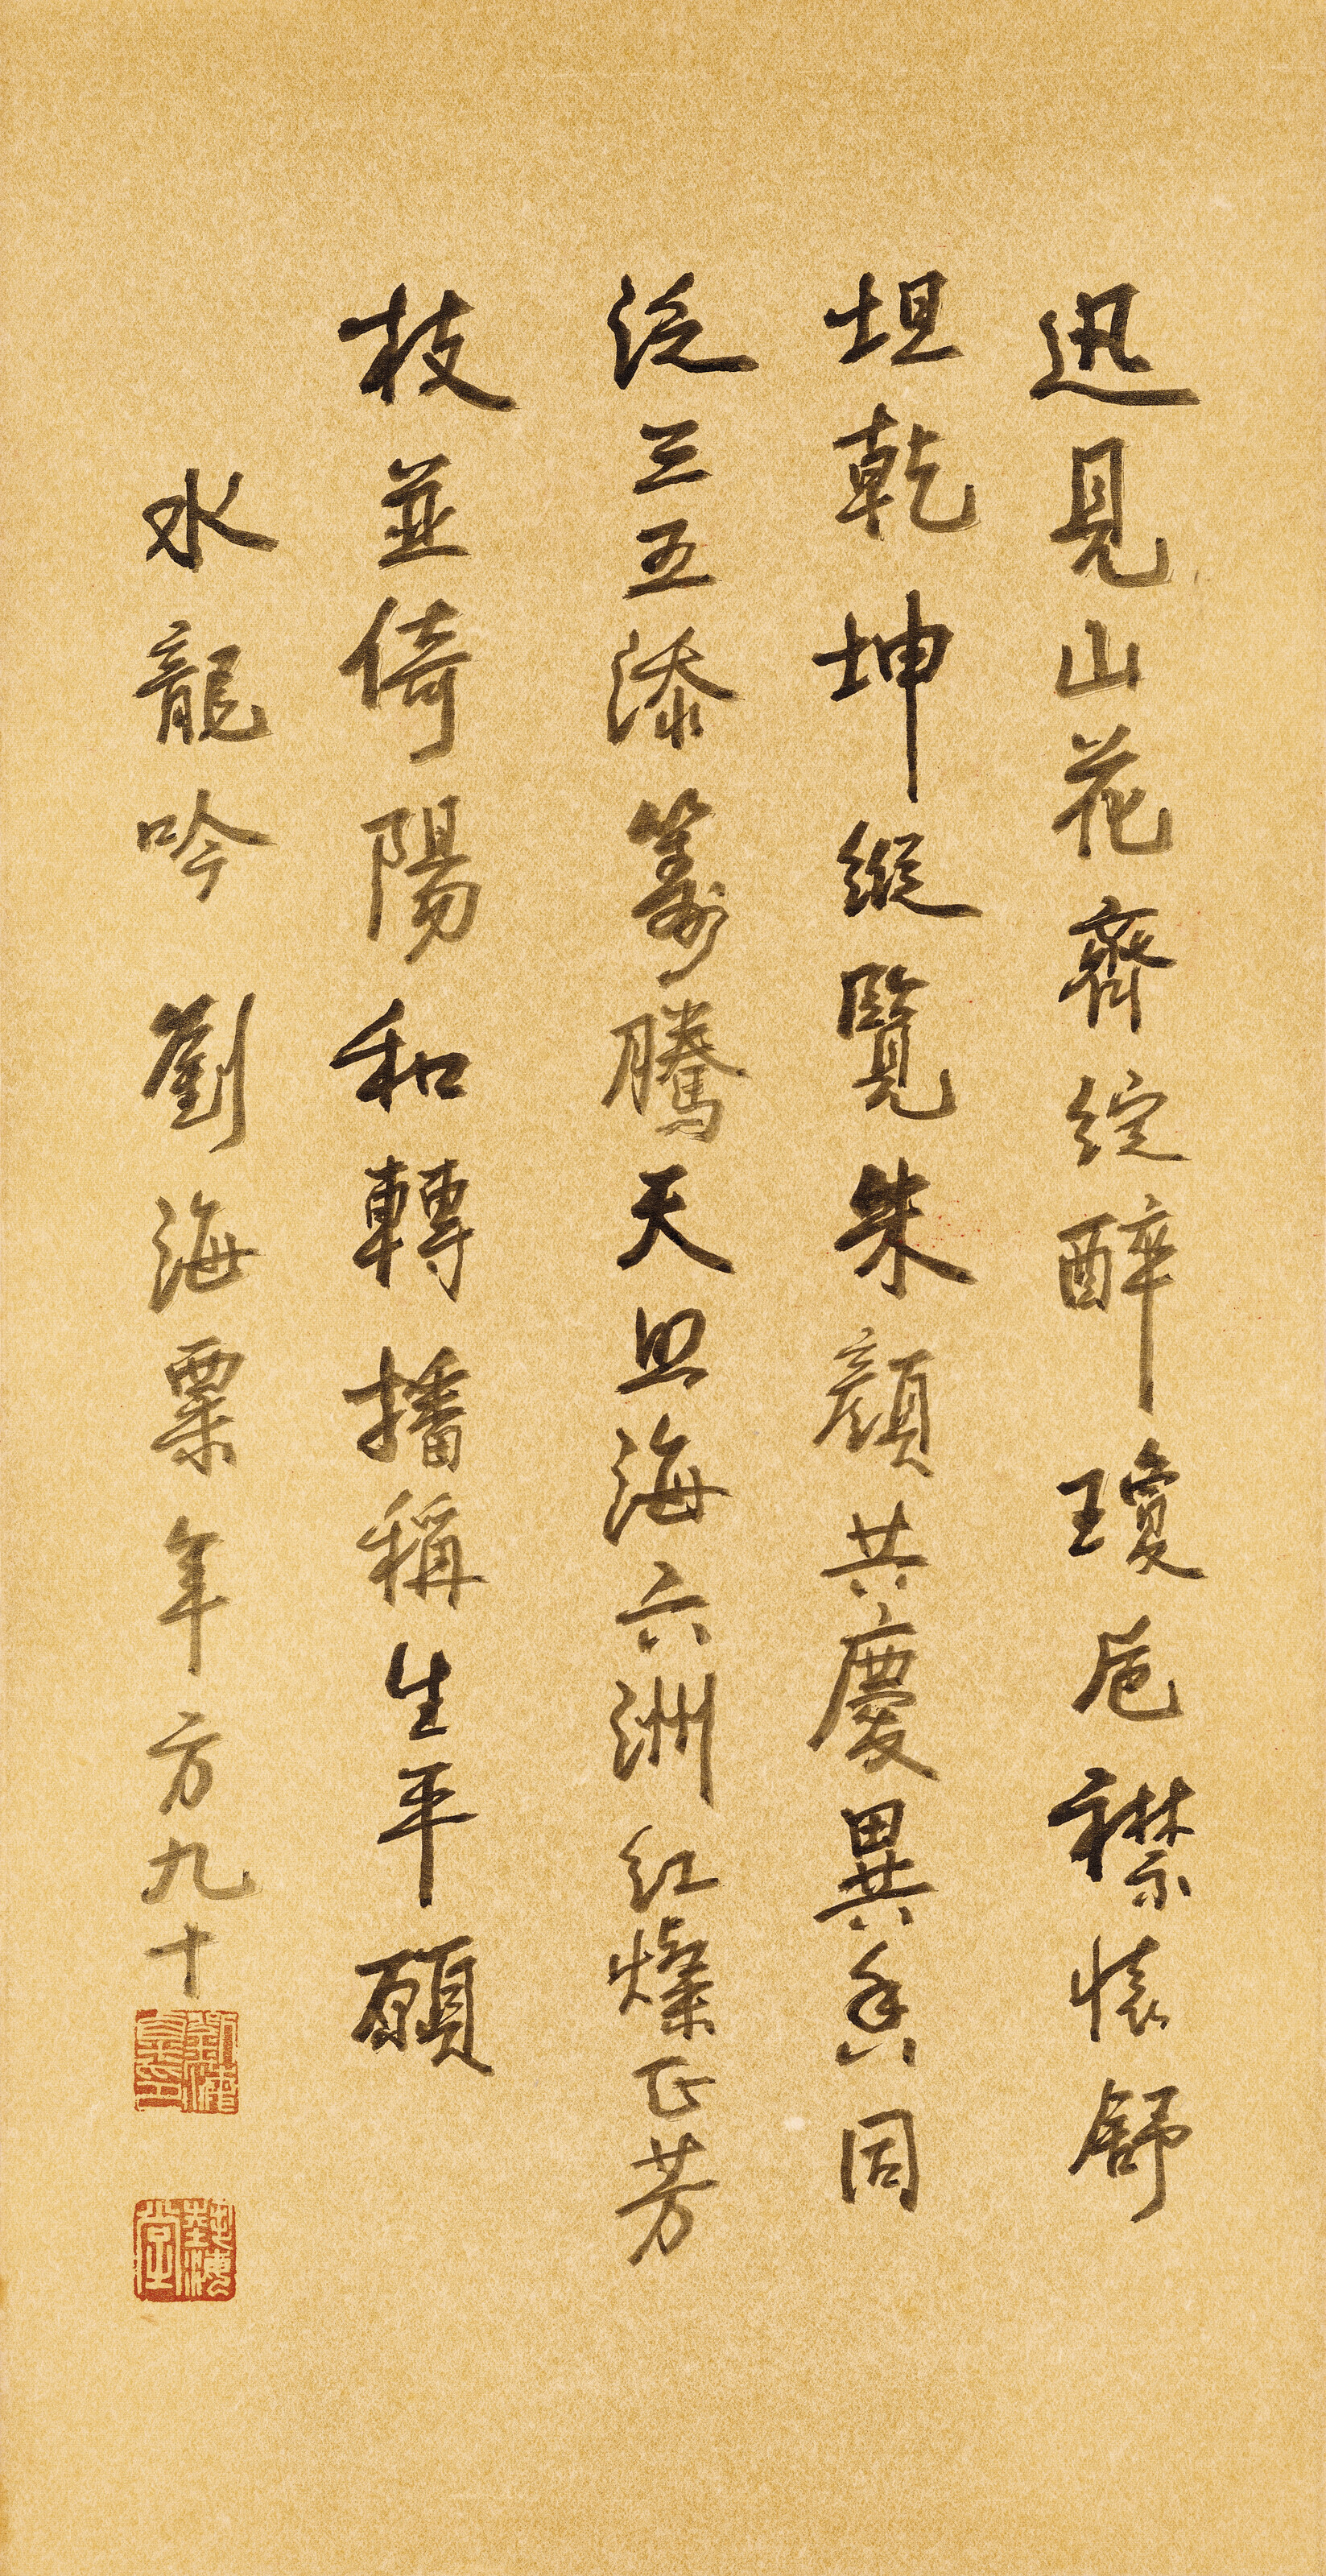 迅見山花齊綻醉瓊卮襟懷舒
坦乾坤縱覽朱顏共慶異香同
泛三五添籌騰天照海六洲紅燦正芳
枝並倚陽和轉播稱生平願
水龍吟 劉海粟年方九十